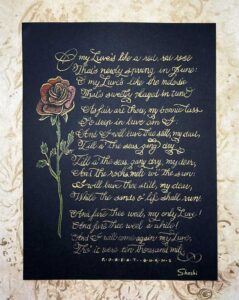 O my Luve's like a red, red rose
That's newly sprung in June:
O my Luve's like the melodie
That's sweetly play'd in tune.
As fair art thou, my bonie lass,
So deep in luve am I;
And I will luve thee still, my dear,
Till a' the seas gang dry.
Till a' the seas gang dry, my dear,
And the rocks melt wi' the sun:
I will luve thee still, my dear,
While the sands o' life shall run.
And fare thee weel, my only Luve!
And fare thee weel a while!
And I will come again, my Luve,
Tho' it were ten thousand mile.
ROBERT BURNS
Shashi